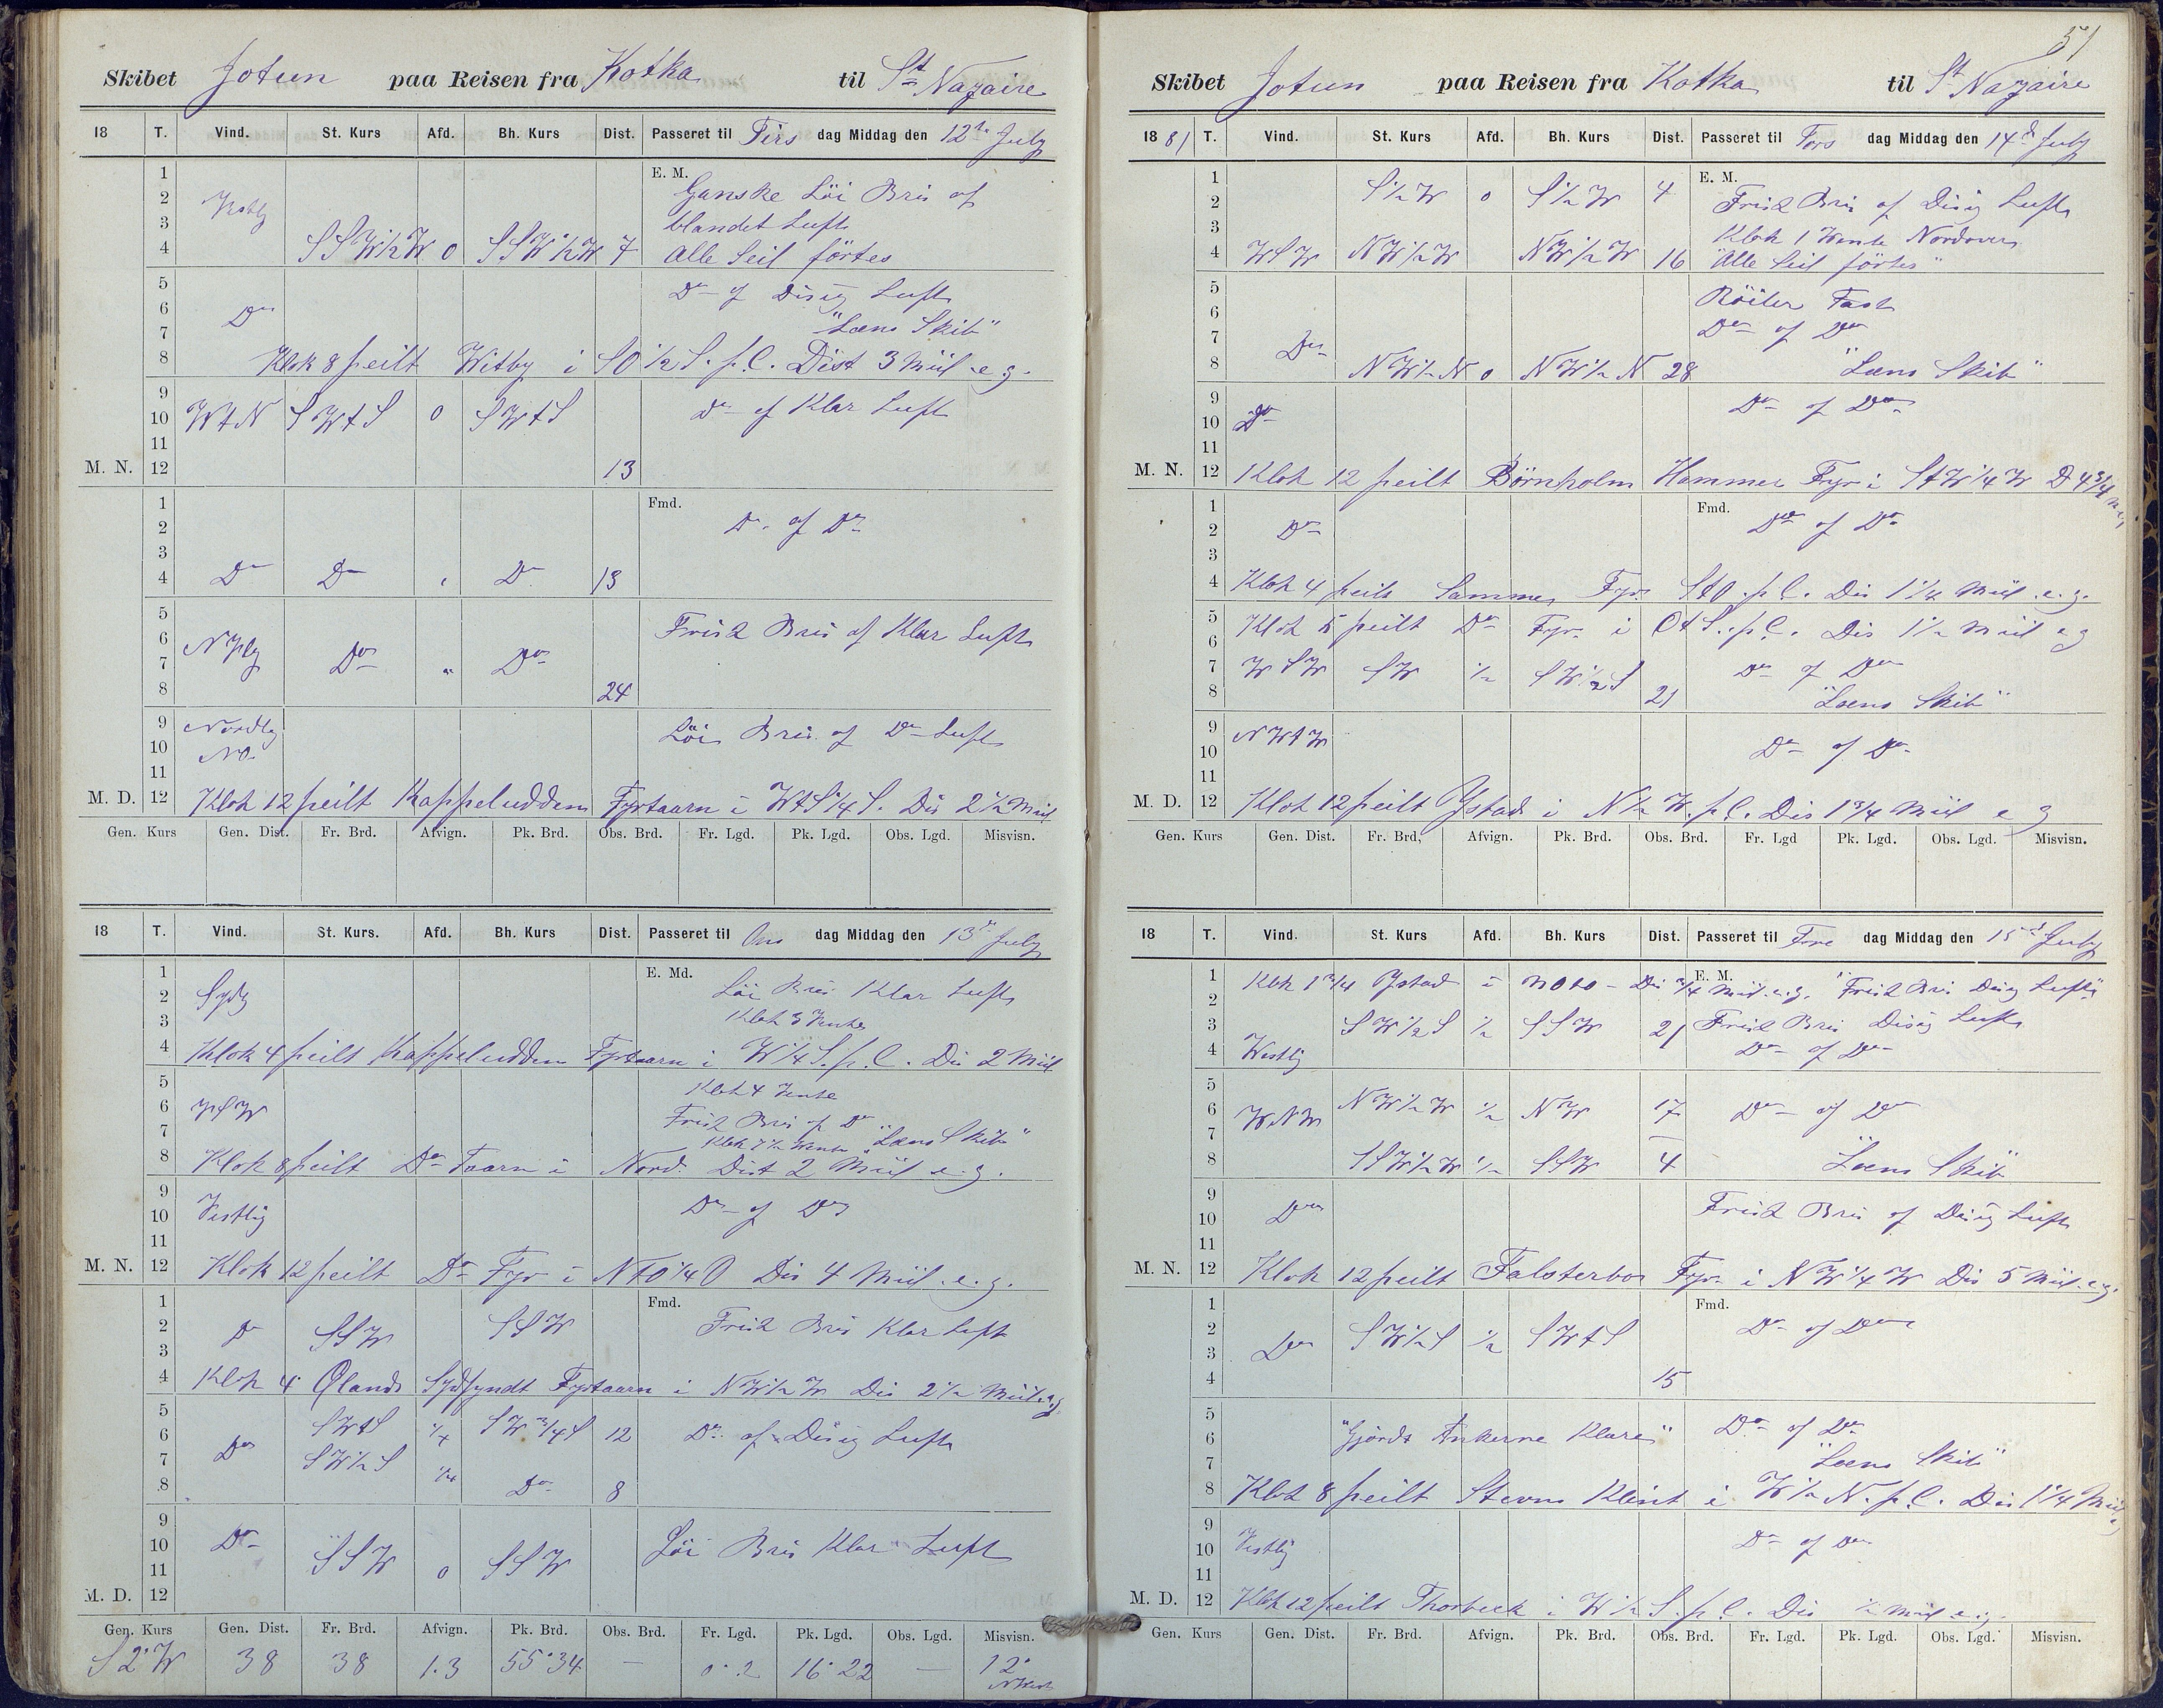 Skibet Jotun paa Reisen fra Kotka til St Nazaire
18 T. Vind. St. Kurs Afd. Bh. Kurs Dist. Passeret til Tirs dag Middag den 12te July
1 E. M.
2 Ganske Löi Bris af
3 blandet Luft
4 SSW½W 0 SSW½W 7 Alle Seil förtes
5 Do af Disig Luft
6 Do
7 "Læns Skib"
8 Klok 8 peilt Witby i SO½S. p. C. Dist 3 Miil e. g.
9
10 WtN SWtS 0 SWtS Do af Klar Luft
11
M. N. 12 13
1 Fmd.
2 Do af Do
3
4 Do Do " Do 13
5
6 Frisk Bris af Klar Luft
7 Do " Do
8 24
9 Nordlig Löi Bris af Do Luft
10 NO
11
M. D. 12 Klok 12 peilt Kappeludden Fyrtaarn i WtS¼S. Dis 2½ Miil
Gen. Kurs Gen. Dist. Fr. Brd. Afvign. Pk. Brd. Obs. Brd. Fr. Lgd. Pk. Lgd. Obs. Lgd. Misvisn.
18 T. Vind. St. Kurs. Afd. Bh. Kurs Dist. Passeret til Ons dag Middag den 13de July
1 E. Md. Löi Bris Klar Luft
2 Sydlig
3 Klok 3 Vente
4 Klok 4 peilt Kappeludden Fyrtaarn i W¼S. p. C. Dis 2 Miil
5 Klok 4 Vente
6 Frisk Bris af Do
7 Klok 7½ Wente "Læns Skib"
8 Klok 8 peilt Do Taarn i Nord. Dist 2 Miil e. g.
9
10 Vestlig Do af Do
11
M. N. 12 Klok 12 peilt Do Fyr i NtO¼O Dis 4 Miil. e. g.
1 Fmd.
2 Do SSW SSW Frisk Bris Klar Luft
3
4 Klok 4 Ølands Sydsyndt Fyrtaarn i NW½W Dis 2½ Miil e g
5
6 Do SWtS ¼ SW¾S 12 Do af Disig Luft
7 SW½S ¼
8 Do 8
9
10 Do SSW 0 SSW Löi Bris Klar Luft
11
M. D. 12
Gen. Kurs Gen. Dist. Fr. Brd. Afvign. Pk. Brd. Obs. Brd. Fr. Lgd. Pk. Lgd. Obs. Lgd. Misvisn.
S 2° W 38 38 1.3 55°34 — 0°2 16°22 — 12°
51
Skibet Jotun paa Reisen fra Kotka til St Nazaire
1881 T. Vind. St. Kurs Afd. Bh. Kurs Dist. Passeret til Tors dag Middag den 14de July
1 E. M.
2 S½W 0 S½W 4 Frisk Bris af Disig Luft
3 Klok 1 Wente Nordover
4 WSW NW½W NW½W 16 "Alle Seil förtes"
5 Röiler Fast
6
7 Do Do af Do
8 NW½N 0 NW½N 28 "Læns Skib"
9 Do af Do
10 Do
11
M. N. 12 Klok 12 peilt Börnholm Hammer Fyr i StW¼W D 4¾ M
1 Fmd.
2 Do Do af Do
3
4 Klok 4 peilt Sammes Fyr StO. p. C. Dis 1¼ Miil. e. g.
5 Klok 5 peilt Do Fyr i OtS. p. C. Dis 1½ Miil e g
6
7 WSW SW ½ SW½S Do af Do
8 21 "Læns Skib"
9 NWtW
10 Do af Do
11
M. D. 12 Klok 12 peilt Ystad i N½W. p. C. Dis 1¾ Miil e g
Gen. Kurs Gen. Dist. Fr. Brd, Afvign. Pk. Brd. Obs. Brd. Fr. Lgd Pk. Lgd. Obs. Lgd. Misvisn.
18 T. Vind. St. Kurs Afd. Bh. Kurs Dist. Passeret til Fre dag Middag den 15de July
1 Klok 1¾ Ystad i NOtO Dis ¾ Miil. e. g. E. M. "Frisk Bris Disig Luft"
2
3 SW½S ½ SSW 21 Frisk Bris Disig Luft
4 Westlig Do af Do
5
6 WNW NW½W ½ NW 17 Do af Do
7
8 SSW½W ½ SSW 4 Læns Skib
9
10 Do Frisk Bris af Disig Luft
11
M. N. 12 Klok 12 peilt Falsterbor Fyr i NW¼W Dis 5 Miil. e. g.
1 Fmd.
2 Do SW½S ½ SWtS Do af Do
3
4 15
5
6 "Gjorde Ankerne Klare" Do af Do
7 "Læns Skib"
8 Klok 8 peilt Stevns Klint i W½N. p. C. Dis 1¼ Miil
9
10 Vestlig Do af Do
11
M. D. 12 Klok 12 peilt Thorbeck i W½S. p. C. Dis ½ Miil e. g.
Gen. Kurs Gen. Dist. Fr. Brd. Afvign. Pk. Brd. Obs. Brd. Fr. Lgd. Pk. Lgd. Obs. Lgd. Misvisn.